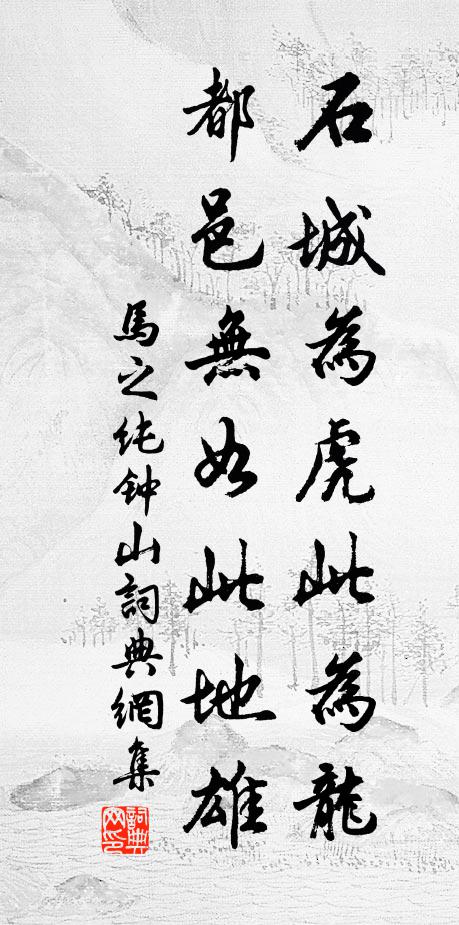 石城為虎此為龍
都邑無如此地雄
馬之纯钟山詞典網集
詞典
网印